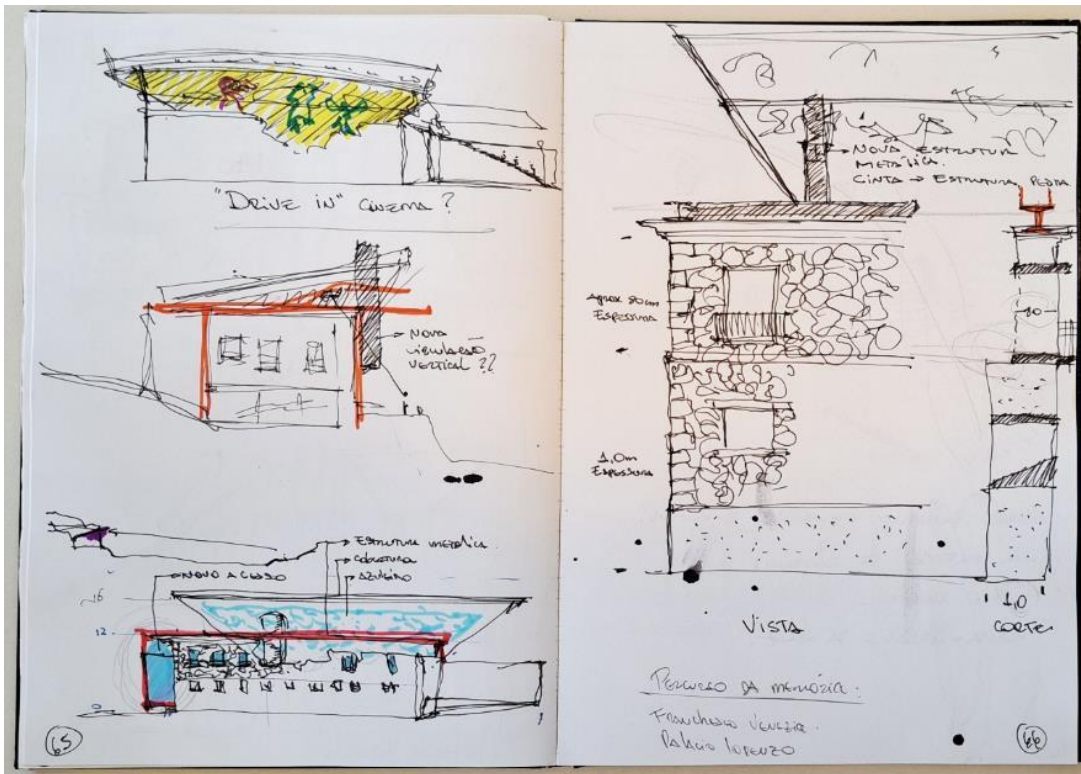 "DRIVE IN" CINEMA ?
NOVA
CIRCULAÇÃO
VERTICAL ??
ESTRUTURA METÁLICA
COBERTURA
NOVO ACESSO
AZULEJO
16
12
0
65
NOVA ESTRUTUR
METÁLICA.
CINTA → ESTRUTURA PEDRA
APROX 80cm
ESPESSURA
80
1,0m
ESPESSURA
1,0
VISTA
CORTE
PERCURSO DA MEMÓRIA:
FRANCHESCO VENEZIA.
PALÁCIO LORENZO
66